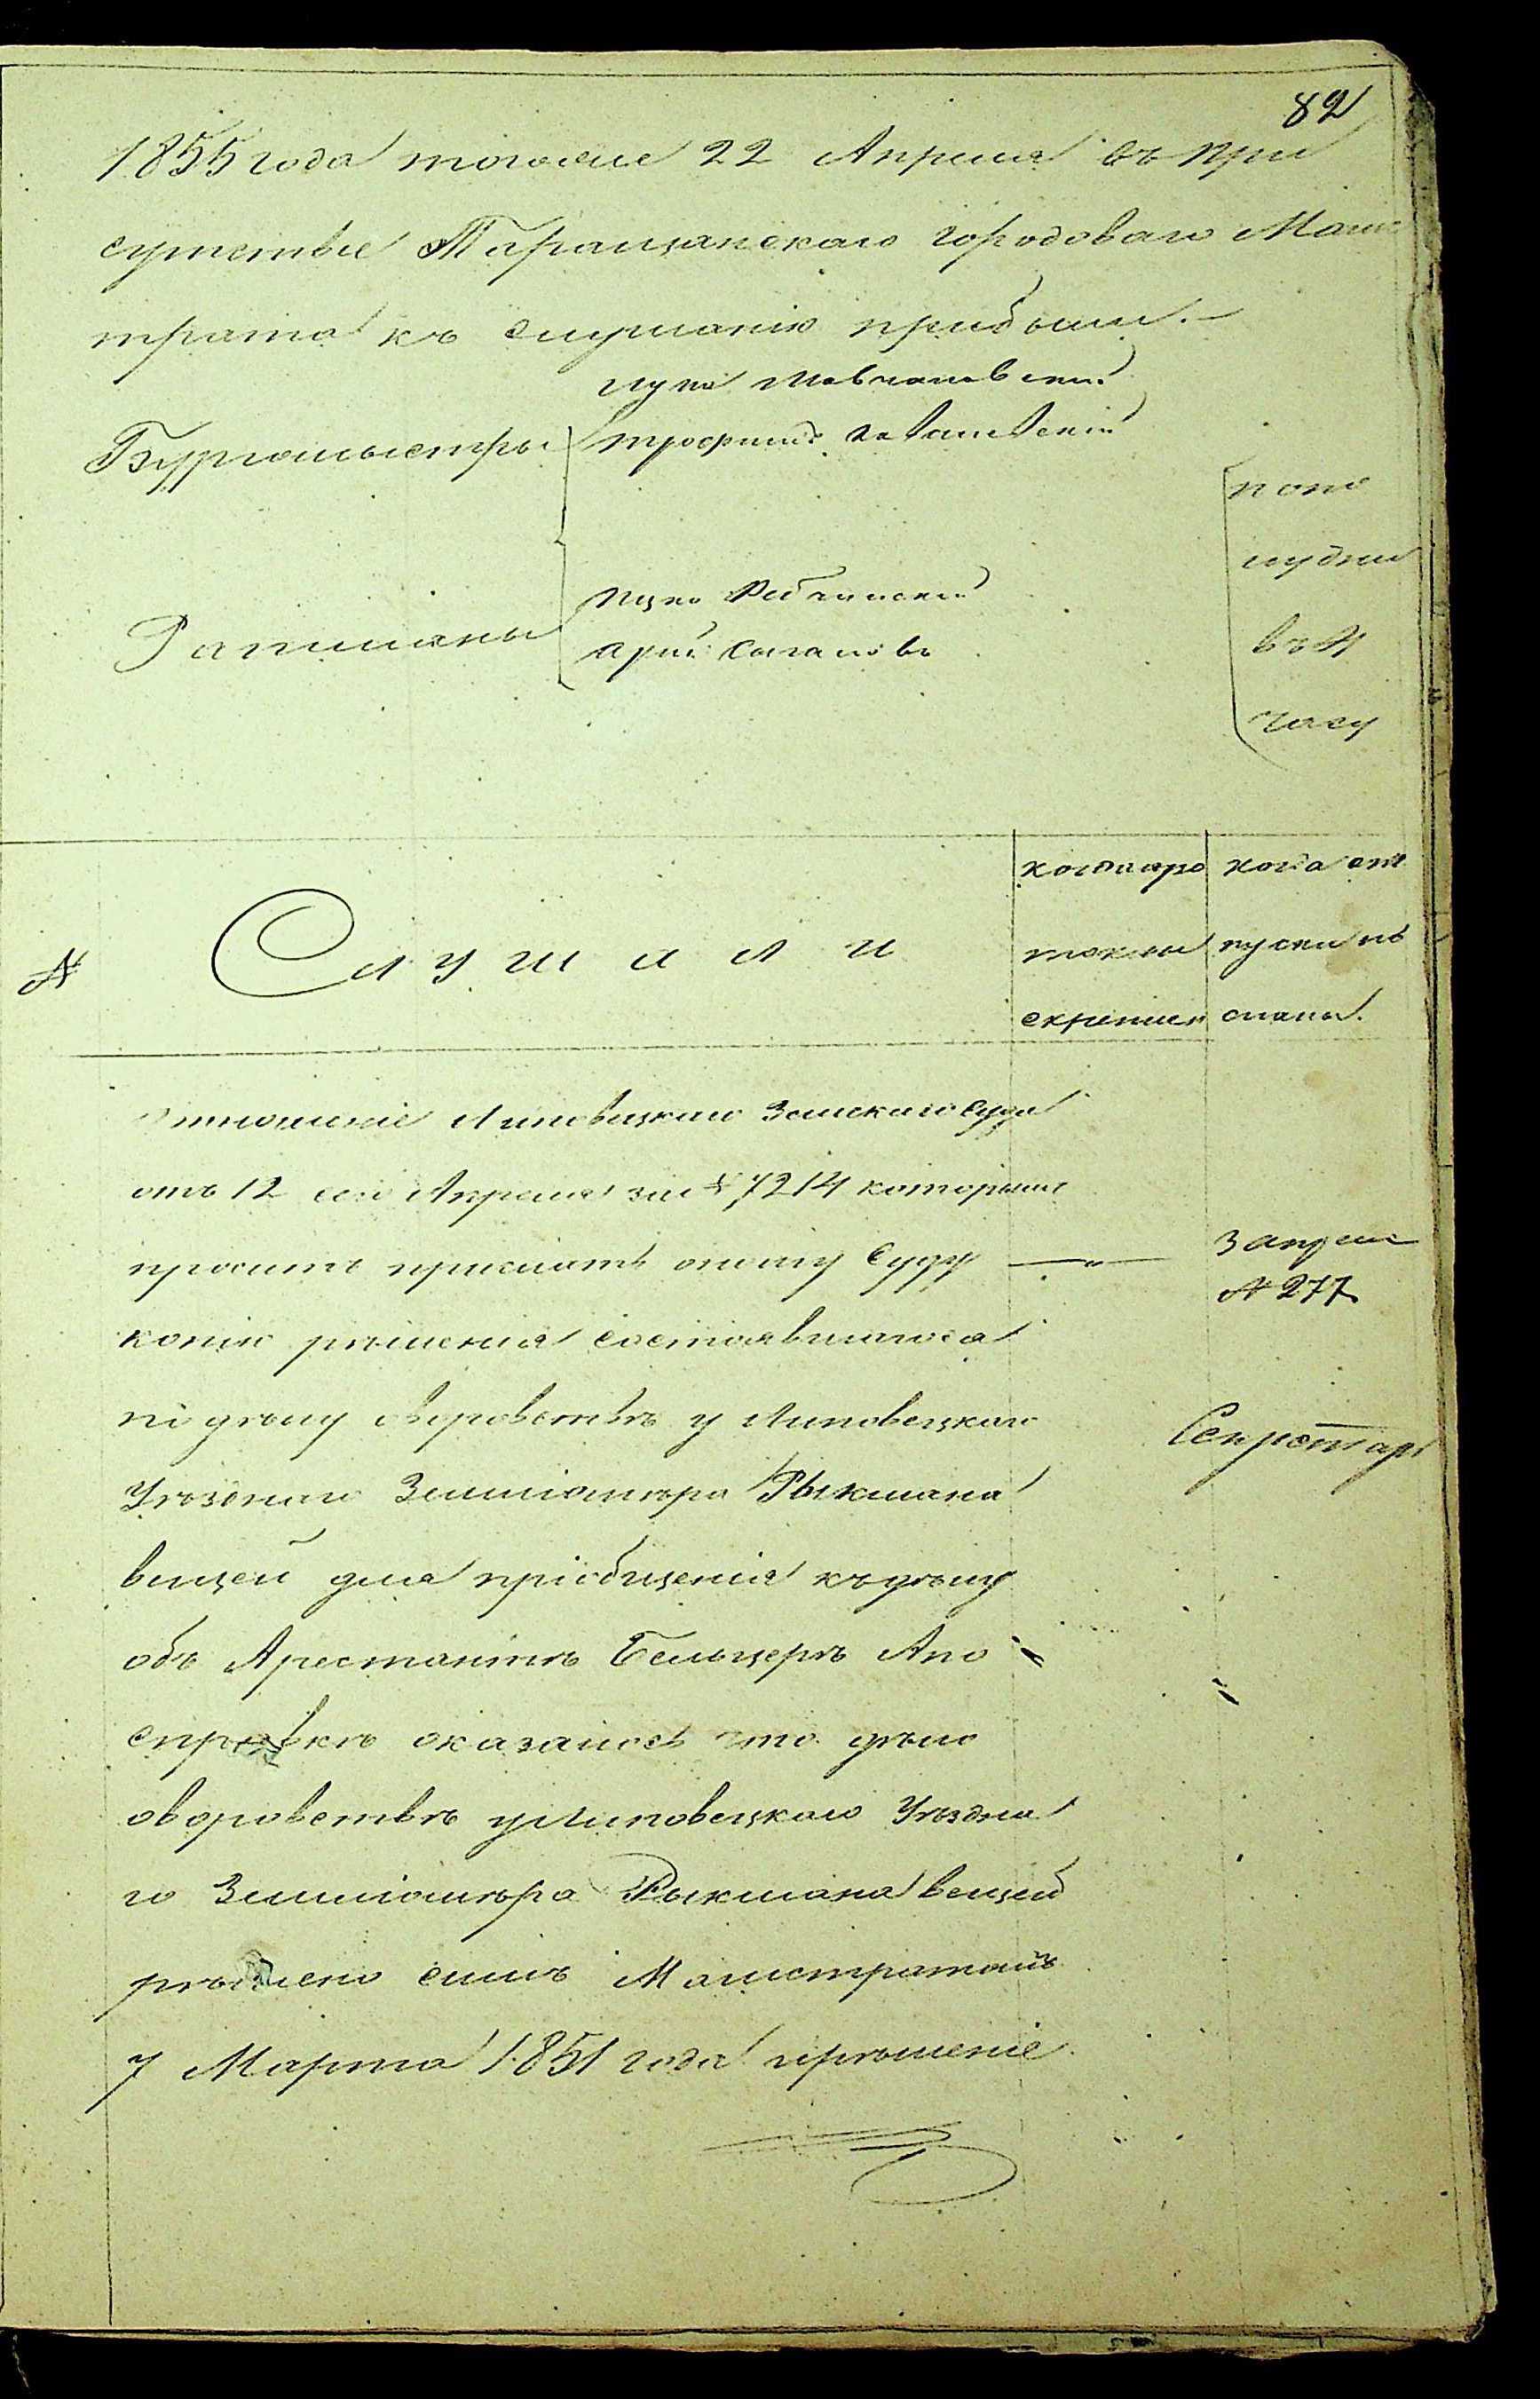 82
1855 года тогоже 22 Апреля въ При
сутствіе Таращанскаго городоваго Маги
страта къ слушанію прибыли.
Бургомыстры
Ратманы
попо
лудни
въ
часу
№
Слушали
когда про
токолъ
скрепленъ
когда от
пускъ пи
санъ.
Отношеніе Липовецкаго Земскаго Суда
отъ 12 сего Апреля за № 7214 которымъ
проситъ прислать оному Суду
копію рѣшенія состоявшагося
по дѣлу оворовствѣ у Липовецкаго
Уѣзднаго Землѣмѣра Рыкмана
вещей для пріобщенія къ дѣлу
объ Арестантѣ Бельцерѣ Апо
справкѣ оказалось что дѣло
оворовствѣ у Липовецкаго Уѣздна
го Землѣмѣра Рыкмана вещей
рѣшено симъ Магистратомъ
7 Марта 1851 года ирѣшеніе
3 апреля
№ 277
Секретарь